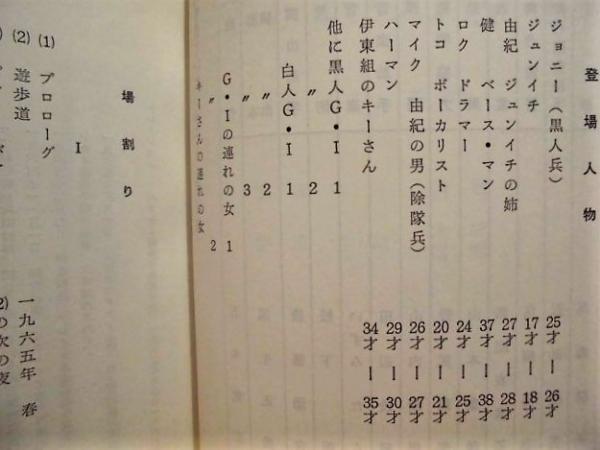 登場人物
ジョニー（黒人兵） 25才ー26才
ジュンイチ 17才ー18才
由紀 ジュンイチの姉 27才ー28才
健 ベース・マン 37才ー38才
ロク ドラマー 24才ー25才
トコ ボーカリスト 20才ー21才
マイク 由紀の男（除隊兵） 26才ー27才
ハーマン 29才ー30才
伊東組のキーさん 34才ー35才
他に黒人G・I 1
〃 2
白人G・I 1
〃 2
〃 3
G・Iの連れの女 1
〃 2
キーさんの連れの女
場割り
I
(1) プロローグ 一九六五年 春
(2) 遊歩道 の次の夜